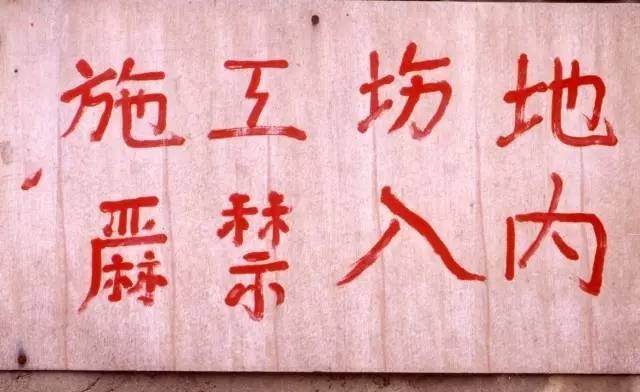 施工坊地
严禁入内